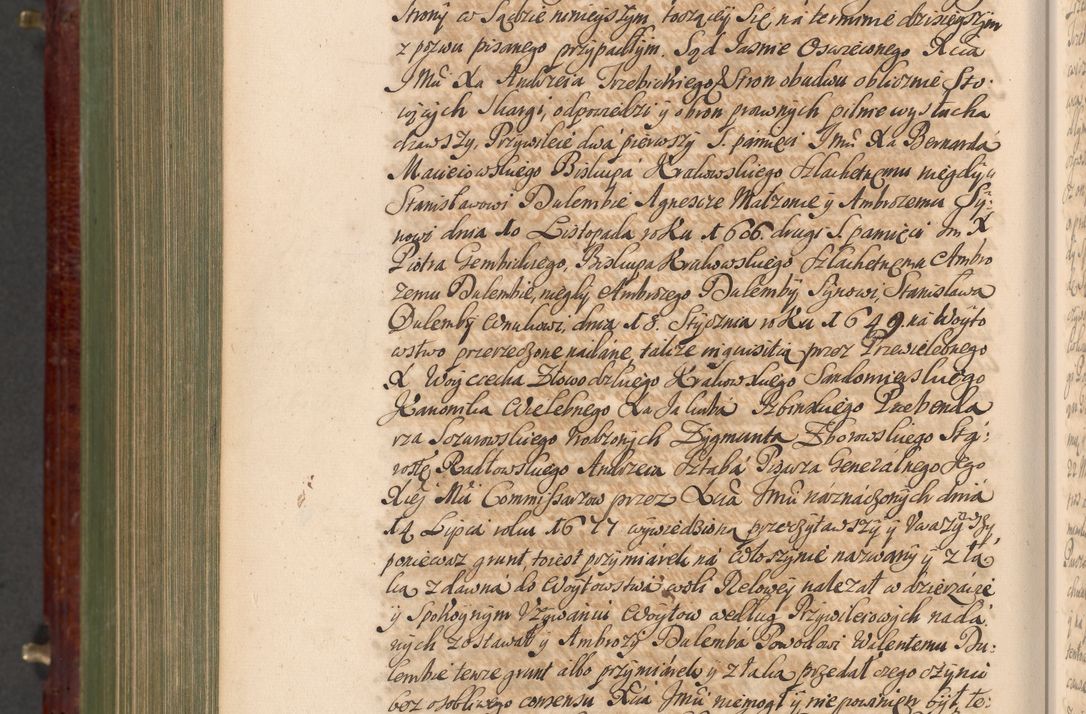 Strony w Sądzie ninieyszym, toczący Się, na terminie dzisieyszym
z pozwu pisanego przypadłym. Sąd Jasnie Oswieconego Xcia
Jmci Xa Andrzeia Trzebickiego Stron obudwu oblicznie Sto-
iących Skargi, odpowiedzi y obron prawnych pilnie wysłucha
chawszy, Przywileie dwa pierwszy S. pamięci Jmci Xa Bernarda
Macieiowskiego Biskupa Krakowskiego Szlachetnemu niegdy
Stanisławowi Dulembie Agneszce Małzonie y Ambrozemu Sy-
nowi dnia 10 Listopada roku 1606. drugi S. pamięci Jm X
Piotra Gembickiego, Biskupa Krakowskiego Szlachetnemu Ambro
zemu Dulembie, niegdy Ambrozego Dulemby Synowi, Stanisława
Dulemby Wnukowi, dnia 18. Stycznia roku 1649. na Woyto
wstwo przerzeczone nadane, takze inquisitią przez Przewielebnego
X Woyciecha Zkowodzkiego Krakowskiego Sandomirskiego
Kanonika Wielebnego Xa Jakuba Prebenda
rza Rodzonych Zygmunta Zborowskiego Sta-
rostę Radłowskiego Andrzeia Pisarza Generalnego Jego
Xiej Mci Commissarzow przez Xcia Jmci naznaczonych dnia
14 Lypca roku 1677 wywiedzioną przeczytawszy y Uwazywszy
poniewaz grunt, toiest przymiarek na Włoszynie nazwany y z łą
ką zdawna do Woytowstwa woli Relowey nalezał w dzierzącie
y Spokoynym Uzywaniu Woytow według Przywileiowych nada
nych Zostawał y Ambrozy Dulemba Powodowi Walentemu Du-
lembie tenze grunt albo przymiarek y z łąka przedał czego czynic
bez osobliwego consensu Xcia Jmci niemogł y nie powinien był, te-